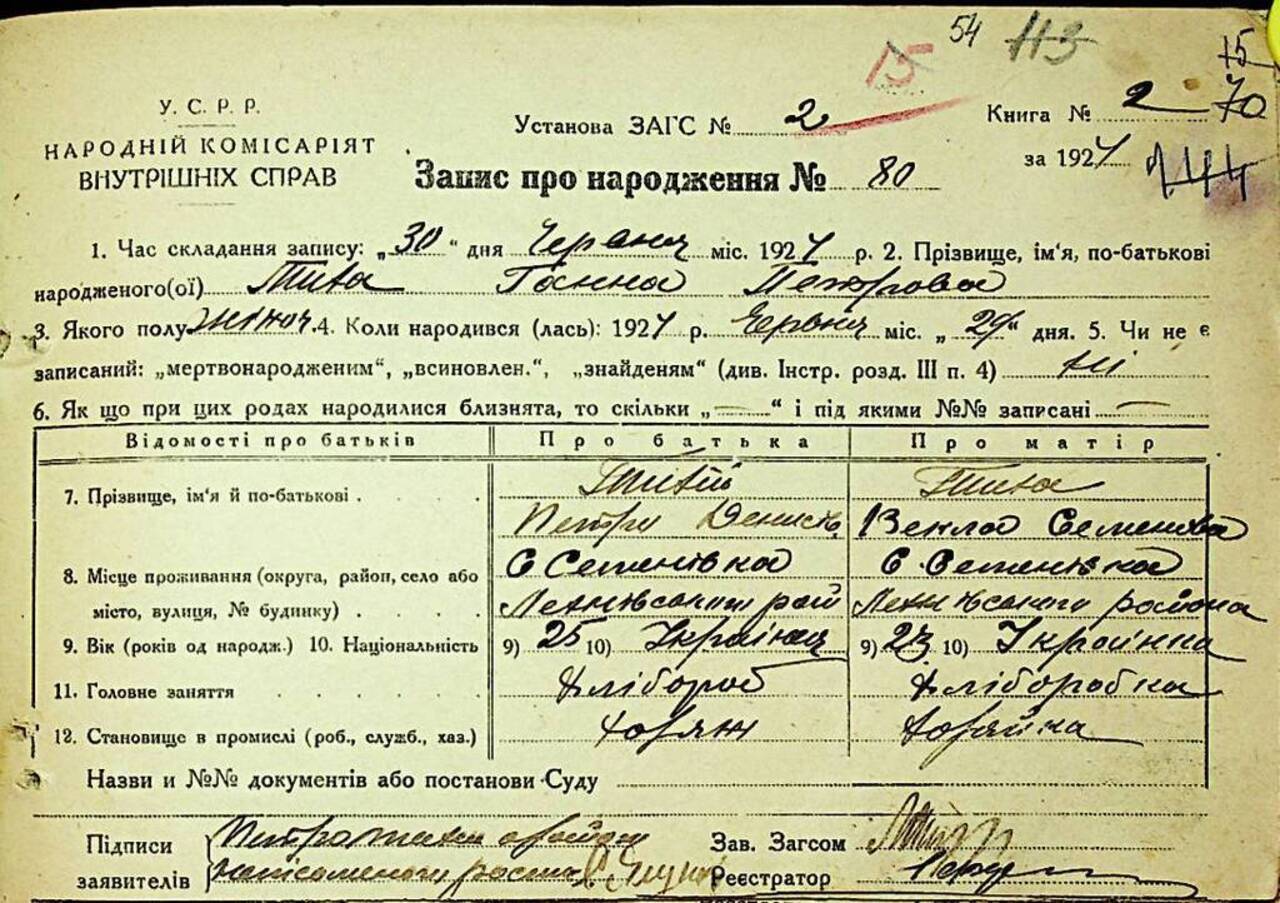 54 113
15
15
У. С. Р. Р.
НАРОДНІЙ КОМІСАРІЯТ
ВНУТРІШНІХ СПРАВ
Установа ЗАГС № 2
Книга № 2 70
за 1927
144
Запис про народження № 80
1. Час складання запису: „30“ дня Червня міс. 1927 р. 2. Прізвище, ім'я, по-батькові
народженого(ої) Тиха Ганна Петрова
3. Якого полу жіноч. 4. Коли народився (лась): 1927 р. Червня міс. „29“ дня. 5. Чи не є
записаний: „мертвонародженим“, „всиновлен.“, „знайденям“ (див. Інстр. розд. III п. 4) ні
6. Як що при цих родах народилися близнята, то скільки „—“ і під якими №№ записані —
Відомості про батьків Про батька Про матір
7. Прізвище, ім'я й по-батькові . . . . Тихий Тиха
Петро Денисів Векла Семенова
8. Місце проживання (округа, район, село або С Семенівка С. Семенівка
місто, вулиця, № будинку) . . . . рай района
9. Вік (років од народж.) 10. Національність 9) 25 10) Українця 9) 23 10) Українка
11. Головне заняття . . . . . Хлібороб Хліборобка
12. Становище в промислі (роб., служб., хаз.)
Назви и №№ документів або постанови Суду
Підписи
заявителів
Зав. Загсом
Реєстратор